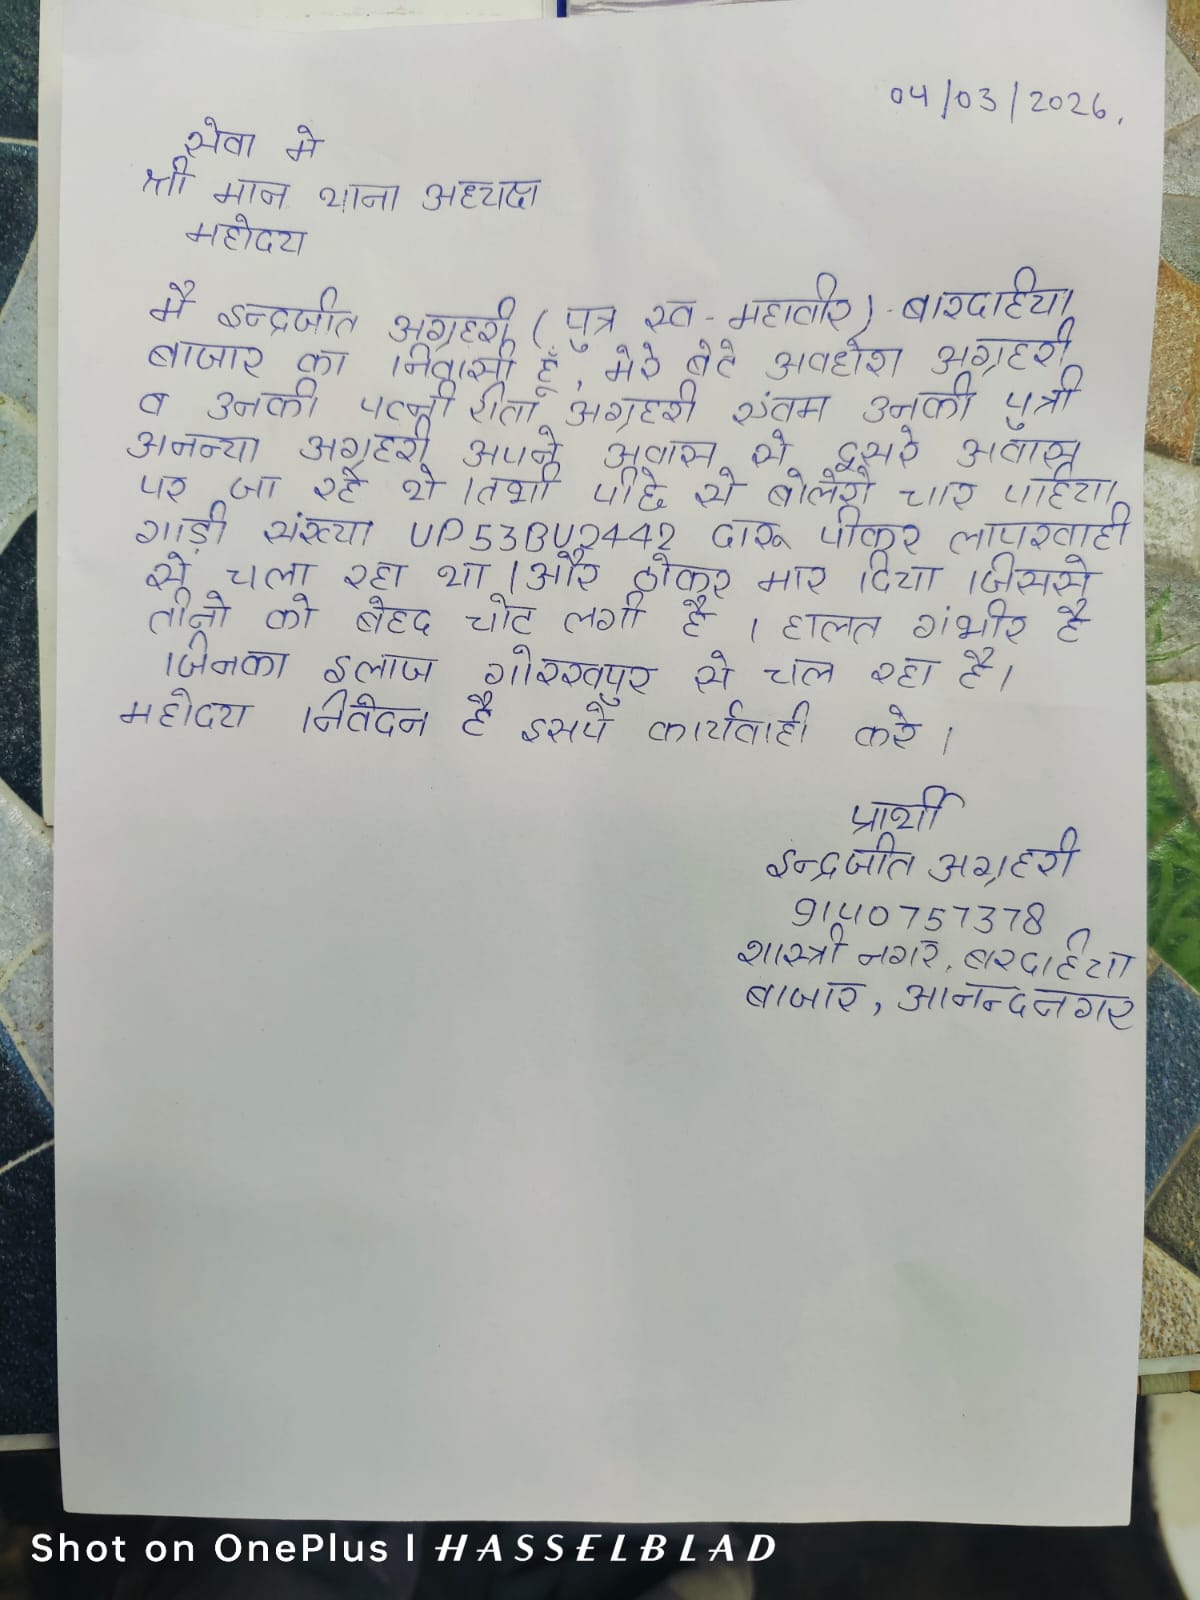 04/03/2026.
सेवा मे
श्री मान थाना अध्यक्ष
महोदय
मै इन्द्रजीत अग्रहरी (पुत्र स्व - महावीर) - बारदाहिया
बाजार का निवासी हूँ, मेरे बेटे अवधेश अग्रहरी
व उनकी पत्नी रीता अग्रहरी संतम उनकी पुत्री
अनन्या अग्रहरी अपने अवास से दूसरे अवास
पर जा रहे थे। तभी पीछे से बोलेरो चार पहिया
गाड़ी संख्या UP53BU2442 दारू पीकर लापरवाही
से चला रहा था। और ठोकर मार दिया जिससे
तीनो को बेहद चोट लगी है। हालत गंभीर है
जिनका इलाज गोरखपुर से चल रहा है।
महोदय निवेदन है इसपे कार्यवाही करे।
प्रार्थी
इन्द्रजीत अग्रहरी
9140757378
शास्त्री नगर, बरदाहिया
बाजार, आनन्दनगर
Shot on OnePlus | HASSELBLAD